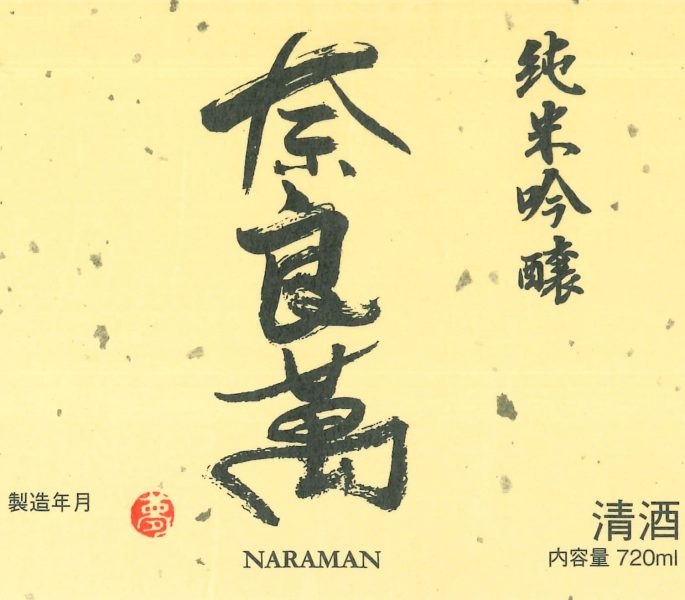 純米吟醸
奈良萬
NARAMAN
製造年月
夢
清酒
内容量 720ml